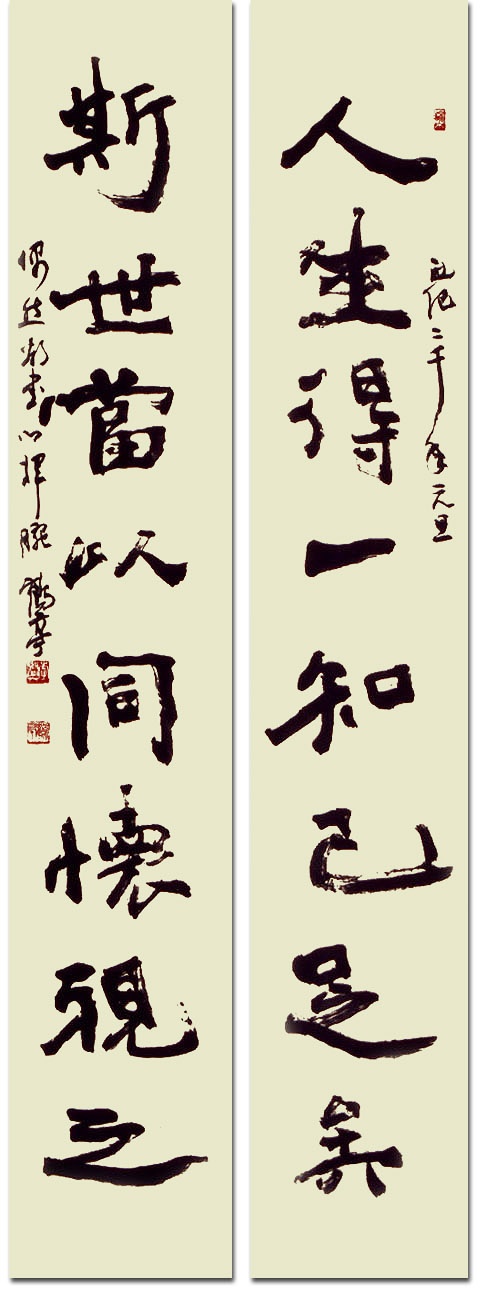 二千年元旦
人生得一知己足矣
斯世當以同懷視之